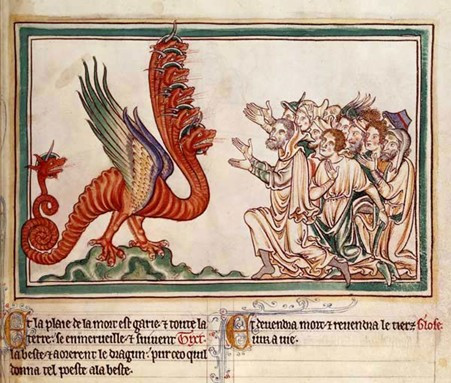 Et la plaie de la mort est garie ⁊ toute la
terre se enmerveille ⁊ siuvent
la beste ⁊ aorerent le dragun : pur ceo quil
donna tel poeste a la beste.
Et devendra mort ⁊ revendra le tierz
iur a vie.